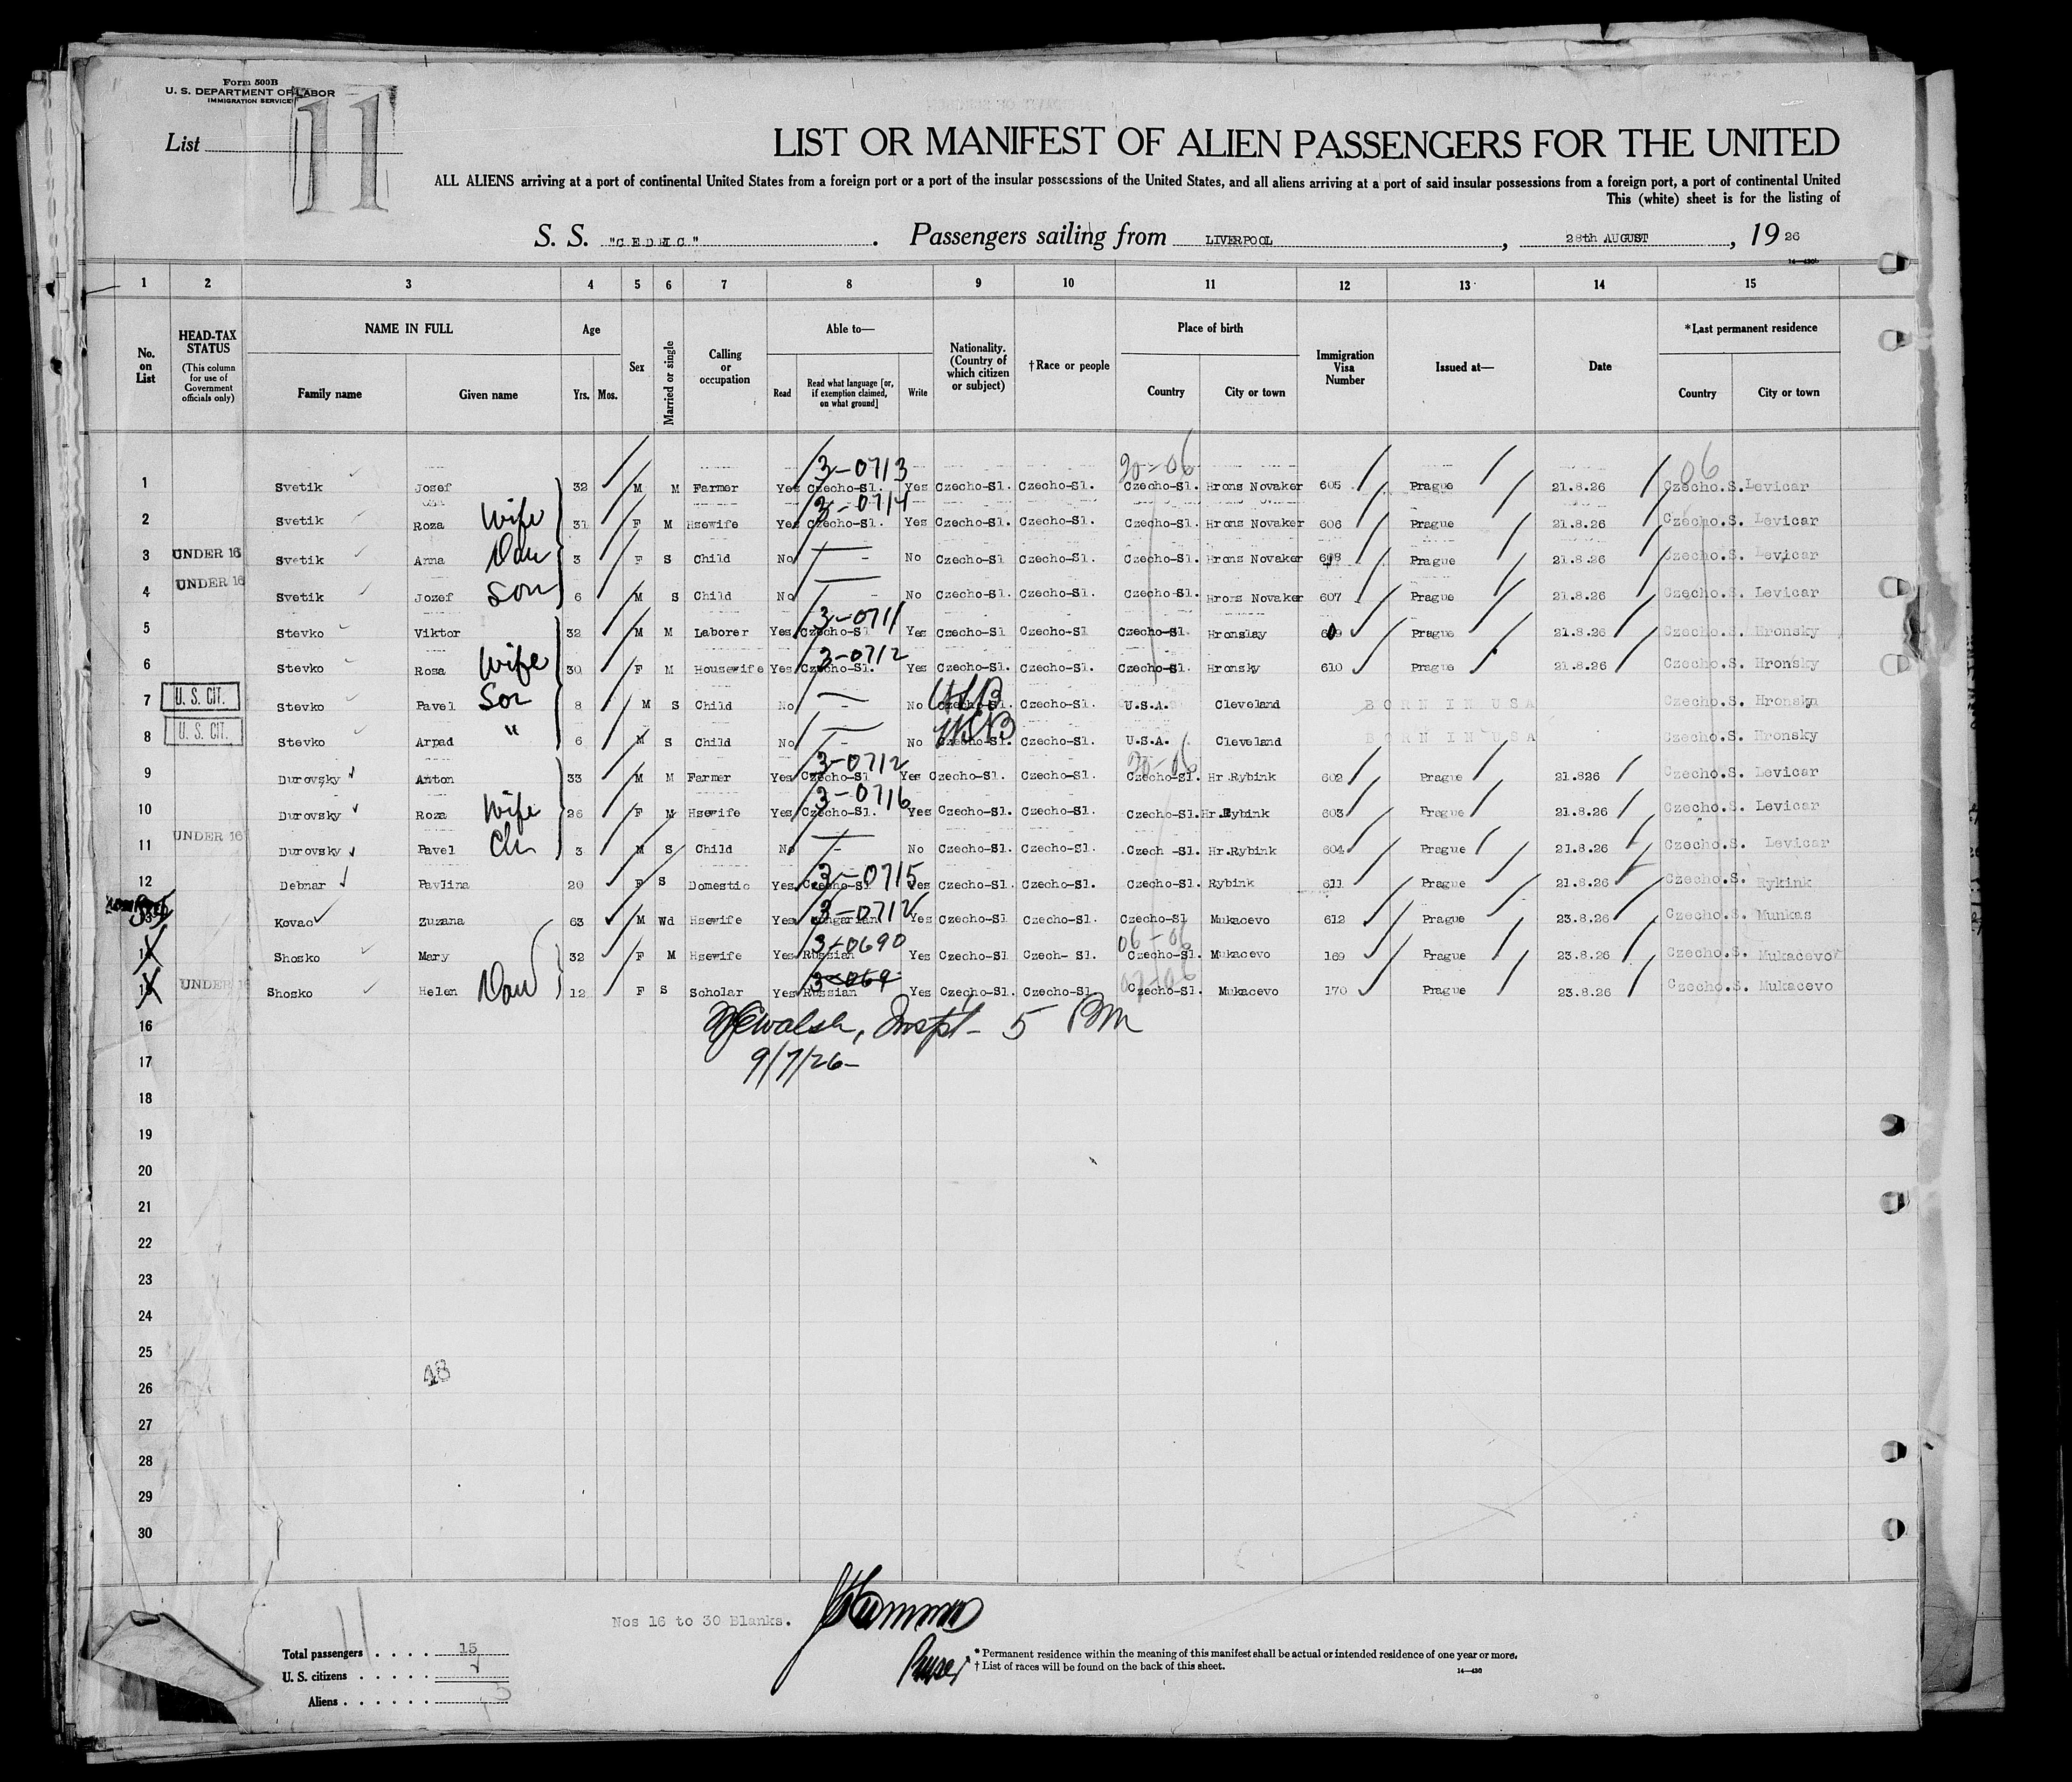 Form 500B
U. S. DEPARTMENT OF LABOR
IMMIGRATION SERVICE
List 11
LIST OR MANIFEST OF ALIEN PASSENGERS FOR THE UNITED
ALL ALIENS arriving at a port of continental United States from a foreign port or a port of the insular possessions of the United States, and all aliens arriving at a port of said insular possessions from a foreign port, a port of continental United
This (white) sheet is for the listing of
S. S. "CEDRIC" . Passengers sailing from LIVERPOOL , 28th AUGUST , 19 26
14—430b
1 2 3 4 5 6 7 8 9 10 11 12 13 14 15
No. on List
HEAD-TAX STATUS
(This column for use of Government officials only)
NAME IN FULL
Family name Given name
Age
Yrs. Mos.
Sex
Married or single
Calling or occupation
Able to—
Read
Read what language [or, if exemption claimed, on what ground]
Write
Nationality. (Country of which citizen or subject)
†Race or people
Place of birth
Country City or town
Immigration Visa Number
Issued at—
Date
*Last permanent residence
Country City or town
3-0713 20-06 06
1 Svetik Josef 32 M M Farmer Yes Czecho-Sl. Yes Czecho-Sl. Czecho-Sl. Czecho-Sl. Hrons Novaker 605 Prague 21.8.26 Czecho.S. Levicar
3-0714
2 Svetik Roza Wife 31 F M Hsewife Yes Czecho-Sl. Yes Czecho-Sl. Czecho-Sl. Czecho-Sl. Hrons Novaker 606 Prague 21.8.26 Czecho.S. Levicar
3 UNDER 16 Svetik Anna Dau 3 F S Child No - No Czecho-Sl Czecho-Sl. Czecho-Sl. Hrons Novaker 608 Prague 21.8.26 Czecho.S. Levicar
4 UNDER 16 Svetik Jozef Son 6 M S Child No - No Czecho-Sl. Czecho-Sl. Czecho-Sl. Hrons Novaker 607 Prague 21.8.26 Czecho.S. Levicar
3-0711
5 Stevko Viktor 32 M M Laborer Yes Czecho-Sl Yes Czecho-Sl Czecho-Sl Czecho-Sl. Hronslay 609 Prague 21.8.26 Czecho.S. Hronsky
3-0712
6 Stevko Rosa Wife 30 F M Housewife Yes Czecho-Sl. Yes Czecho-Sl. Czecho-Sl. Czecho-Sl. Hronsky 610 Prague 21.8.26 Czecho.S. Hronsky
7 U. S. CIT. Stevko Pavel Son 8 M S Child No - No Czecho-Sl. USB Czecho-Sl. U.S.A. Cleveland BORN IN USA Czecho.S. Hronsky
8 U. S. CIT. Stevko Arpad " 6 M S Child No - No Czecho-Sl. USB Czecho-Sl. U.S.A. Cleveland BORN IN USA Czecho.S. Hronsky
3-0712 20-06
9 Durovsky Anton 33 M M Farmer Yes Czecho-Sl Yes Czecho-Sl. Czecho-Sl. Czecho-Sl. Hr.Rybink 602 Prague 21.826 Czecho.S. Levicar
3-0716
10 Durovsky Roza Wife 26 F M Hsewife Yes Czecho-Sl. Yes Czecho-Sl. Czecho-Sl. Czecho-Sl. Hr.Rybink 603 Prague 21.8.26 Czecho.S. Levicar
11 UNDER 16 Durovsky Pavel Ch 3 M S Child No - No Czecho-Sl. Czecho-Sl. Czech -Sl. Hr.Rybink 604 Prague 21.8.26 Czecho.S. Levicar
3-0715
12 Debnar Pavlina 20 F S Domestic Yes Czecho-Sl Yes Czecho-Sl. Czecho-Sl. Czecho-Sl. Rybink 611 Prague 21.8.26 Czecho.S. Rykink
3-0712
ADMITTED Kovac Zuzana 63 M Wd Hsewife Yes Hungarian Yes Czecho-Sl. Czecho-Sl. Czecho-Sl Mukacevo 612 Prague 23.8.26 Czecho.S. Munkas
3-0690 06-06
14 Shosko Mary 32 F M Hsewife Yes Russian Yes Czecho-Sl Czech- Sl. Czecho-Sl. Mukacevo 169 Prague 23.8.26 Czecho.S. Mukacevo
3-069
15 UNDER 16 Shosko Helen Dau 12 F S Scholar Yes Russian Yes Czecho-Sl. Czecho-Sl. Czecho-Sl. Mukacevo 170 Prague 23.8.26 Czecho.S. Mukacevo
16 Walsh, Inspt- 5 PM
17 9/7/26-
18
19
20
21
22
23
24
25
26 48
27
28
29
30
Nos 16 to 30 Blanks.
Total passengers . . . . 15
U. S. citizens . . . . .
Aliens . . . . . .
Purser
* Permanent residence within the meaning of this manifest shall be actual or intended residence of one year or more.
† List of races will be found on the back of this sheet.
14—430